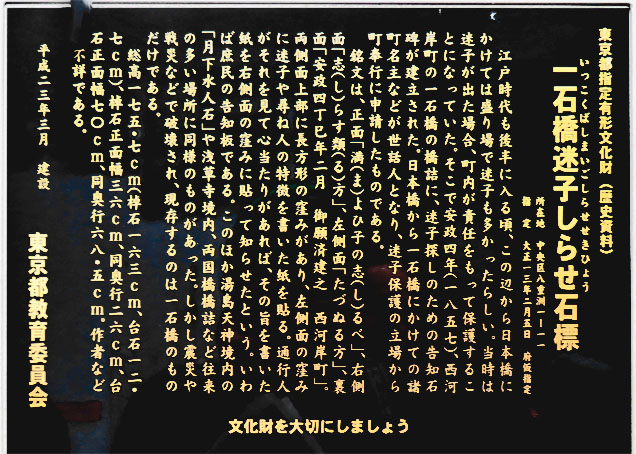 東京都指定有形文化財（歴史資料）
いっこくばしまいごしらせせきひょう
一石橋迷子しらせ石標
所在地　中央区八重洲一ー一一
指　定　大正一三年二月五日　府仮指定
江戸時代も後半に入る頃、この辺から日本橋に
かけては盛り場で迷子も多かったらしい。当時は
迷子が出た場合、町内が責任をもって保護するこ
とになっていた。そこで安政四年（一八五七）、西河
岸町の一石橋の橋詰に、迷子探しのための告知石
碑が建立された。日本橋から一石橋にかけての諸
町名主などが世話人となり、迷子保護の立場から
町奉行に申請したものである。
銘文は、正面「満（ま）よひ子の志（し）るべ」、右側
面「志（し）らす類（る）方」、左側面「たづぬる方」、裏
面「安政四丁巳年二月　御願済建之　西河岸町」。
両側面上部に長方形の窪みがあり、左側面の窪み
に迷子や尋ね人の特徴を書いた紙を貼る。通行人
がそれを見て心当たりがあれば、その旨を書いた
紙を右側面の窪みに貼って知らせたという。いわ
ば庶民の告知板である。このほか湯島天神境内の
「月下氷人石」や浅草寺境内、両国橋橋詰など往来
の多い場所に同様のものがあった。しかし震災や
戦災などで破壊され、現存するのは一石橋のもの
だけである。
総高一七五・七cm（棹石一六三cm、台石一二・
七cm）、棹石正面幅三六cm、同奥行二六cm、台
石正面幅七〇cm、同奥行六八・五cm。作者など
不詳である。
平成二三年三月　建設
東京都教育委員会
文化財を大切にしましょう